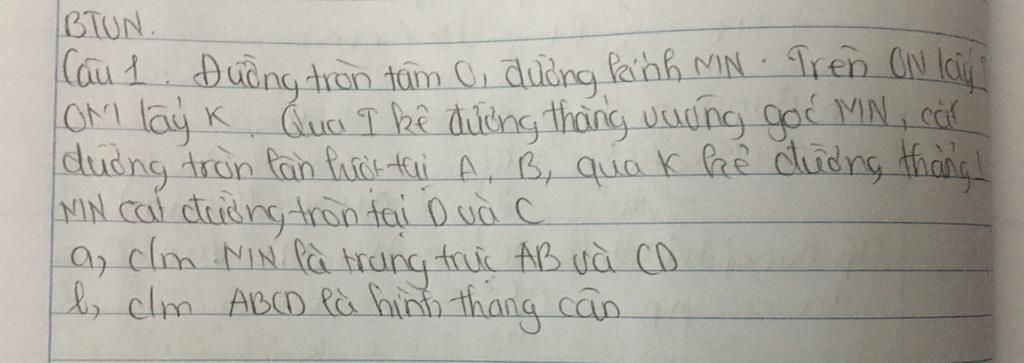 BTVN.
Câu 1. Đường tròn tâm O, đường kính MN. Trên ON lấy I
OM lấy K. Qua I kẻ đường thẳng vuông góc MN, cắt
đường tròn lần lượt tại A, B, qua K kẻ đường thẳng ⊥
MN cắt đường tròn tại D và C
a, c/m MN là trung trực AB và CD
b, c/m ABCD là hình thang cân